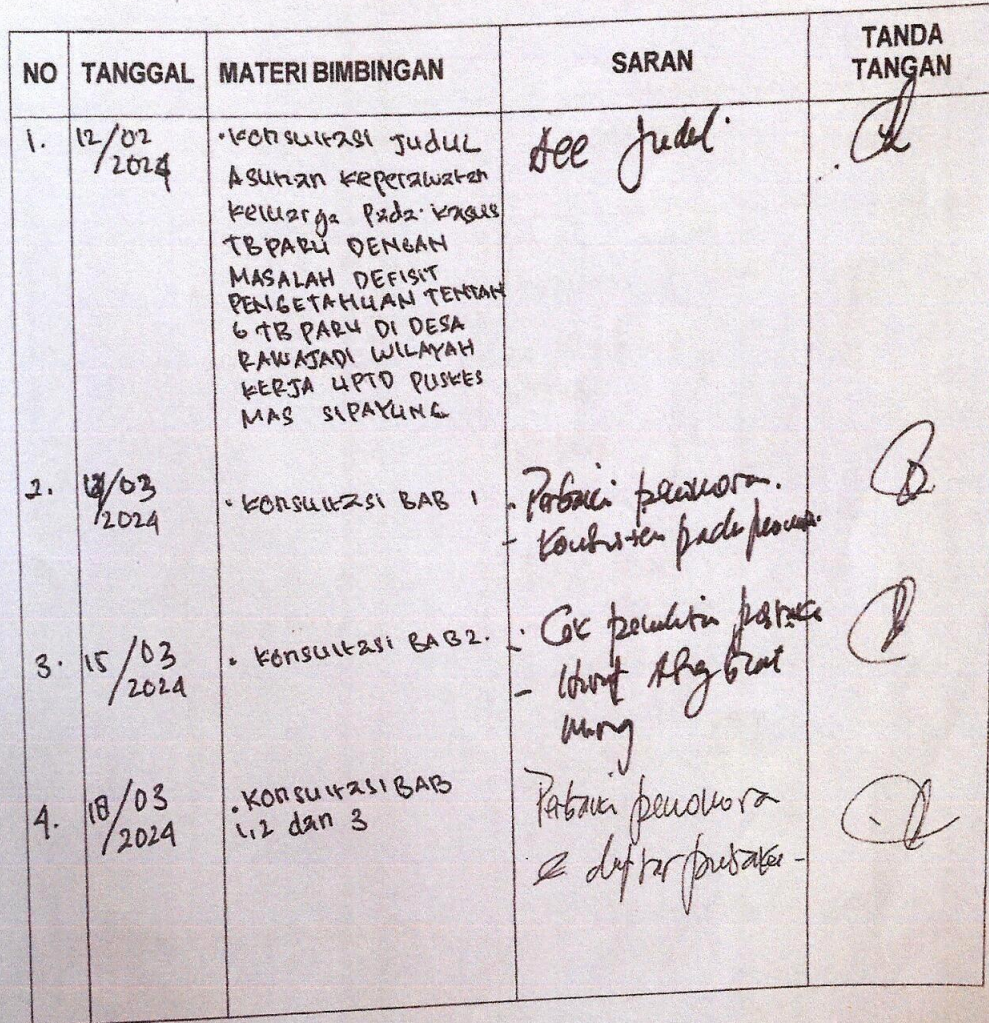 NO TANGGAL MATERI BIMBINGAN SARAN TANDA TANGAN
1. 12/02/2024
• Konsultasi Judul
Asuhan Keperawatan
Keluarga Pada Kasus
TB PARU DENGAN
MASALAH DEFISIT
PENGETAHUAN TENTAN
G TB PARU DI DESA
RAWAJADI WILAYAH
KERJA UPTD PUSKES
MAS SIPAYUNG
Acc Judul
2. /03/2024
• Konsultasi BAB 1
- Perbaiki penomoran.
- Konsisten pada
3. 15/03/2024
• Konsultasi BAB 2.
- Cek penulisan pustaka
- Huruf Asing Cetak
Miring
4. 18/03/2024
• Konsultasi BAB
1,2 dan 3
Perbaiki penomoran
& daftar pustaka -